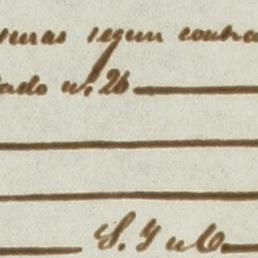 segun contra
ado n. 26
S. J u C